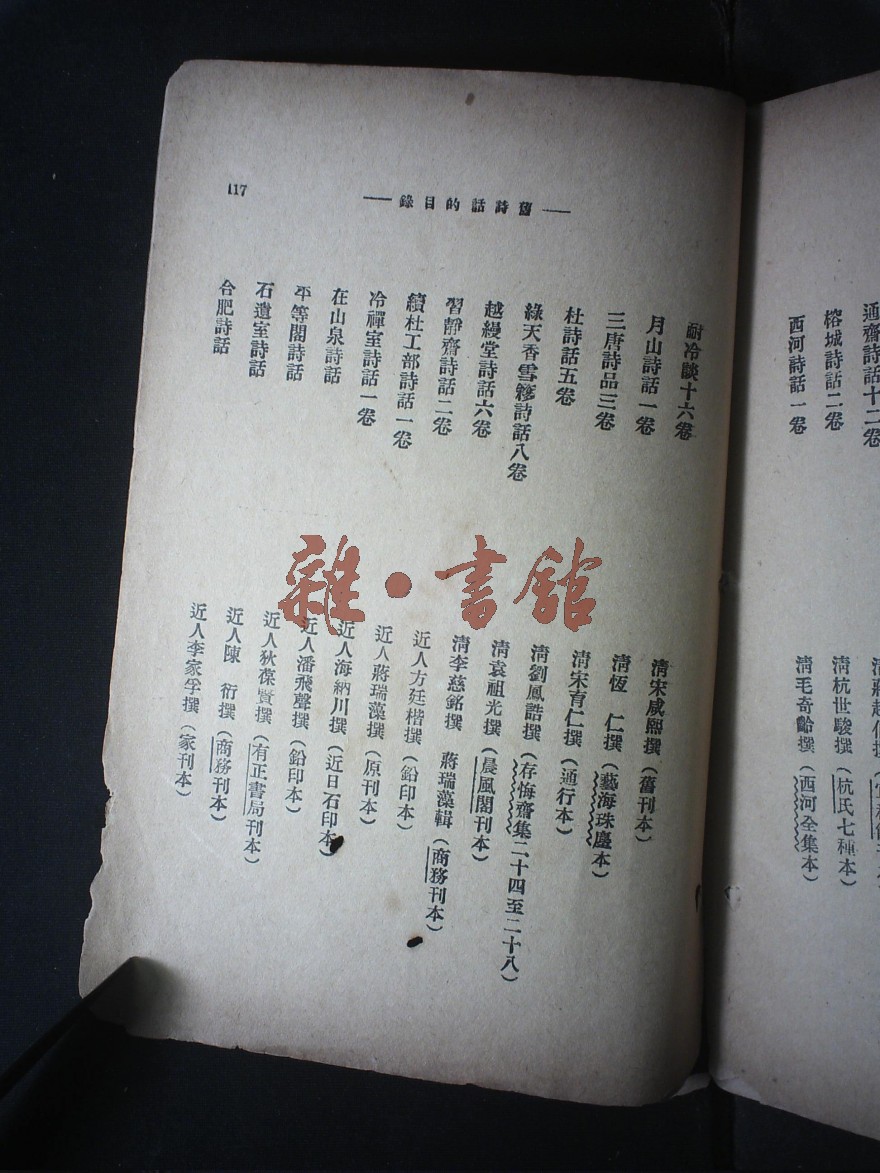 通齋詩話十二卷
榕城詩話二卷
清杭世駿撰（杭氏七種本）
西河詩話一卷
清毛奇齡撰（西河全集本）
舊詩話的目錄
117
耐冷談十六卷
清宋咸熙撰（舊刊本）
月山詩話一卷
清恆　仁撰（藝海珠塵本）
三唐詩品三卷
清宋育仁撰（通行本）
杜詩話五卷
清劉鳳誥撰（存悔齋集二十四至二十八）
綠天香雪簃詩話八卷
清袁祖光撰（晨風閣刊本）
越縵堂詩話六卷
清李慈銘撰　蔣瑞藻輯（商務刊本）
習靜齋詩話二卷
近人方廷楷撰（鉛印本）
續杜工部詩話一卷
近人蔣瑞藻撰（原刊本）
冷禪室詩話一卷
近人海納川撰（近日石印本）
在山泉詩話
近人潘飛聲撰（鉛印本）
平等閣詩話
近人狄葆賢撰（有正書局刊本）
石遺室詩話
近人陳　衍撰（商務刊本）
合肥詩話
近人李家孚撰（家刊本）
雜·書館